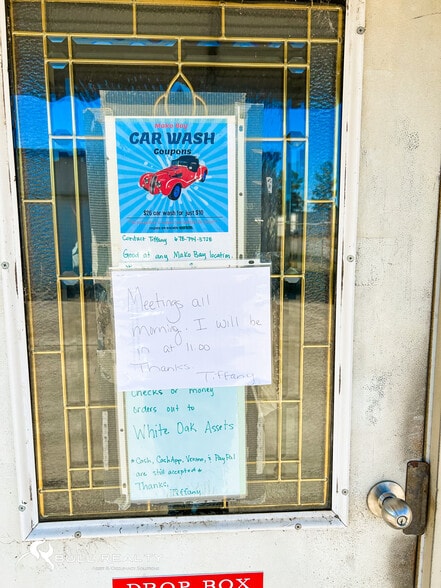 Mako Bay
CAR WASH
Coupons
$20 car wash for just $10
Contact Tiffany
Good at any Mako Bay location.
Meetings all
morning. I will be
in at 11:00
Thanks.
Tiffany
checks or money
orders out to
White Oak Assets
*Cash, CashApp, Venmo, & PayPal
are still accepted*
Thanks,
Tiffany
DROP BOX